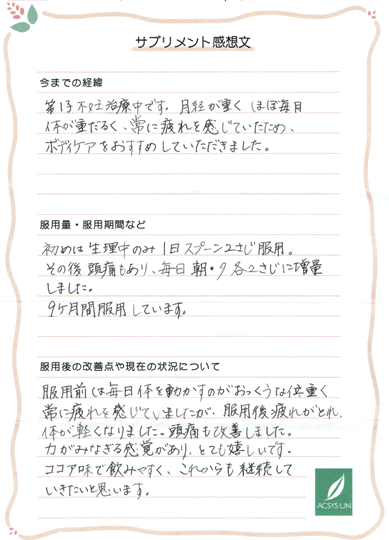 サプリメント感想文
今までの経緯
第1子不妊治療中です。月経が重く ほぼ毎日
体が重だるく、常に疲れを感じていたため、
ボディケアをおすすめしていただきました。
服用量・服用期間など
初めは生理中のみ1日スプーン2さじ服用。
その後 頭痛もあり、毎日 朝・夕 各2さじに増量
しました。
9ケ月間服用しています。
服用後の改善点や現在の状況について
服用前は毎日体を動かすのがおっくうな位重く
常に疲れを感じていましたが、服用後疲れがとれ、
体が軽くなりました。頭痛も改善しました。
力がみなぎる感覚があり、とても嬉しいです。
ココア味で飲みやすく、これからも継続して
いきたいと思います。
ACSYS UN